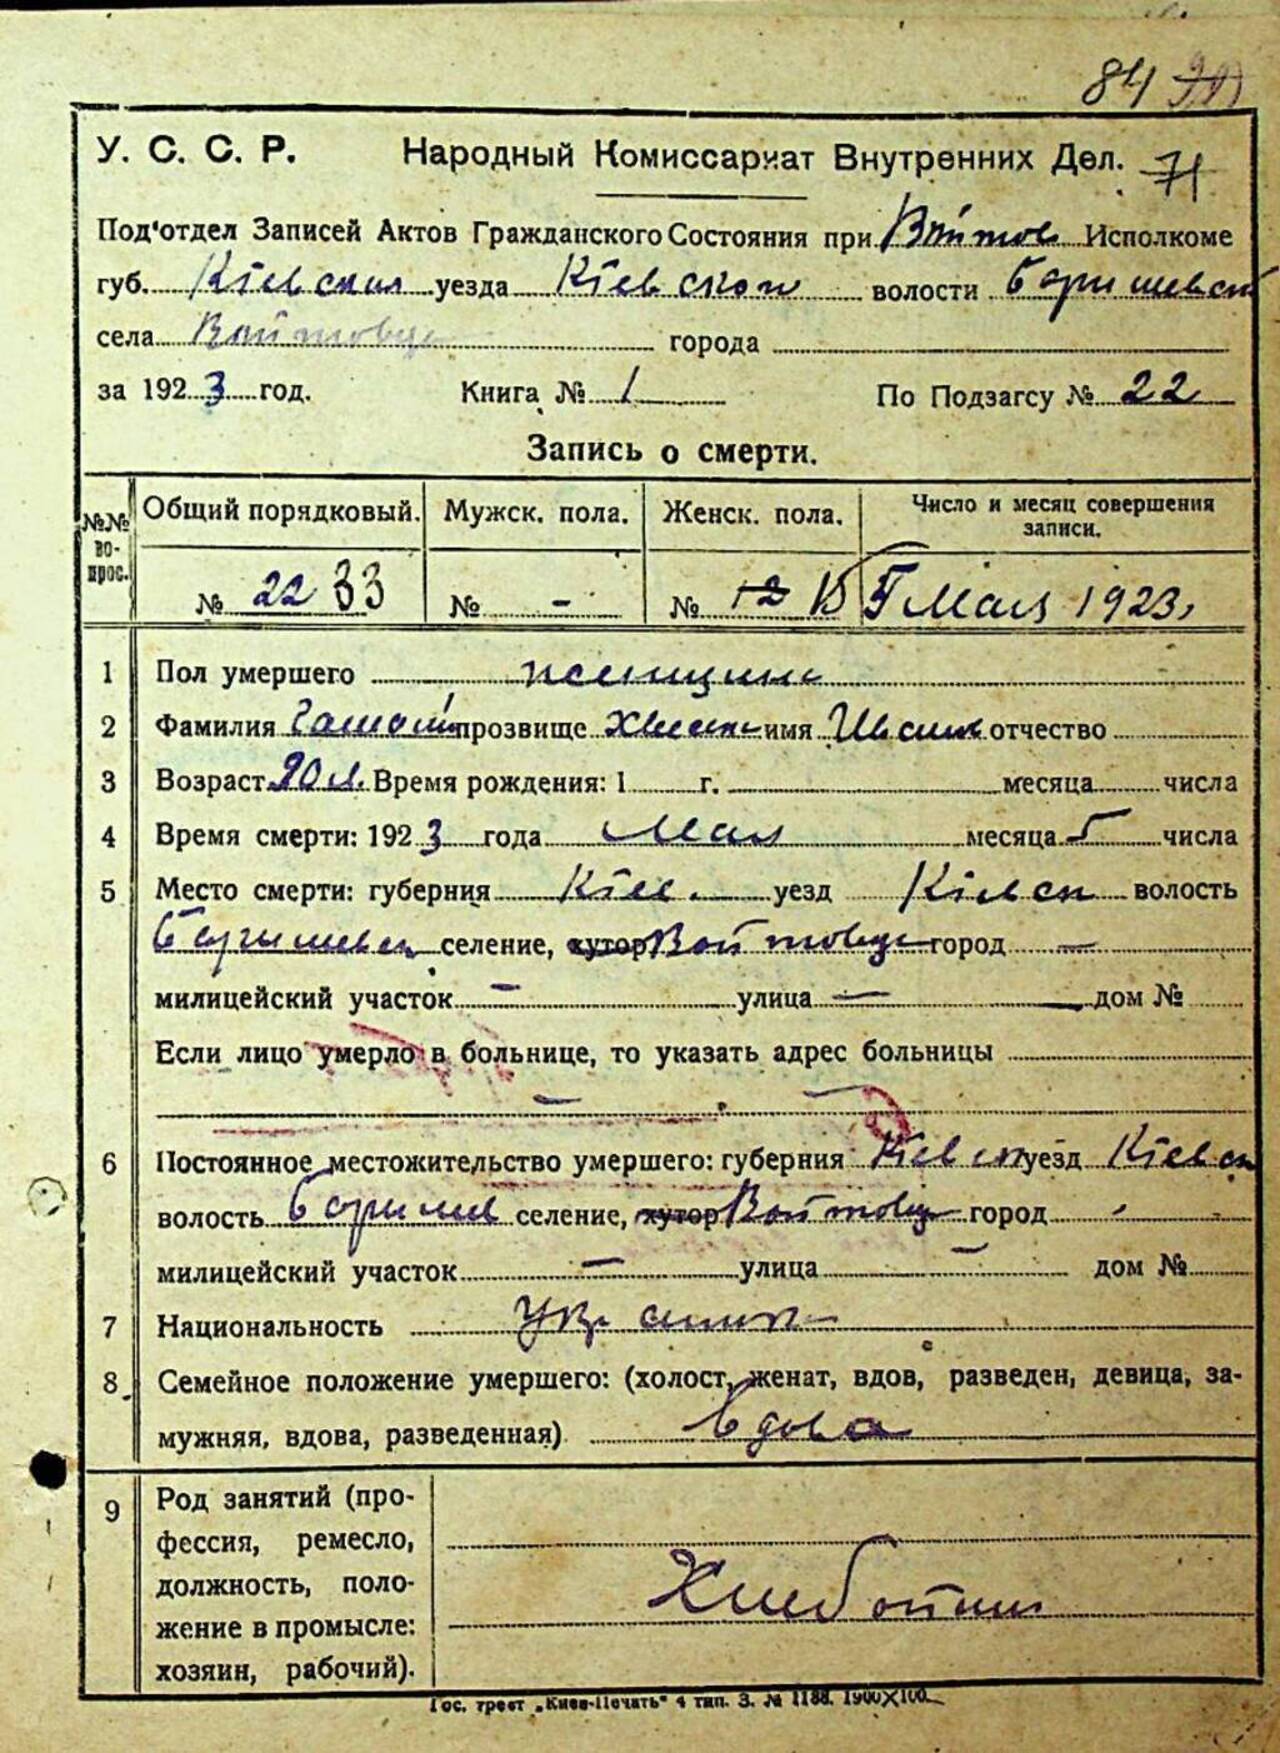 84
У. С. С. Р. Народный Комиссариат Внутренних Дел. 71
Под'отдел Записей Актов Гражданского Состояния при Войтов. Исполкоме
губ. Кіевская уезда Кіевского волости Баришевск
села Войтовци города
за 1923 год. Книга № 1 По Подзагсу № 22
Запись о смерти.
№№ вопрос. Общий порядковый. Мужск. пола. Женск. пола. Число и месяц совершения записи.
№ 22 33 № - № 12 15 5 Мая 1923.
1 Пол умершего женщина
2 Фамилия прозвище имя отчество
3 Возраст 90 л. Время рождения: 1 г. месяца числа
4 Время смерти: 1923 года Мая месяца 5 числа
5 Место смерти: губерния Кіев. уезд Кіевск волость
Баришевск селение, хутор Войтовци город —
милицейский участок — улица — дом №
Если лицо умерло в больнице, то указать адрес больницы
—
6 Постоянное местожительство умершего: губерния Кіевск уезд Кіевск
волость Баришев селение, хутор Войтовци город
милицейский участок — улица — дом №
7 Национальность
8 Семейное положение умершего: (холост, женат, вдов, разведен, девица, за-
мужняя, вдова, разведенная) Вдова
9 Род занятий (про-
фессия, ремесло,
должность, поло-
жение в промысле:
хозяин, рабочий).
Гос. трест „Киев-Печать" 4 тип. З. № 1188. 1900×100.